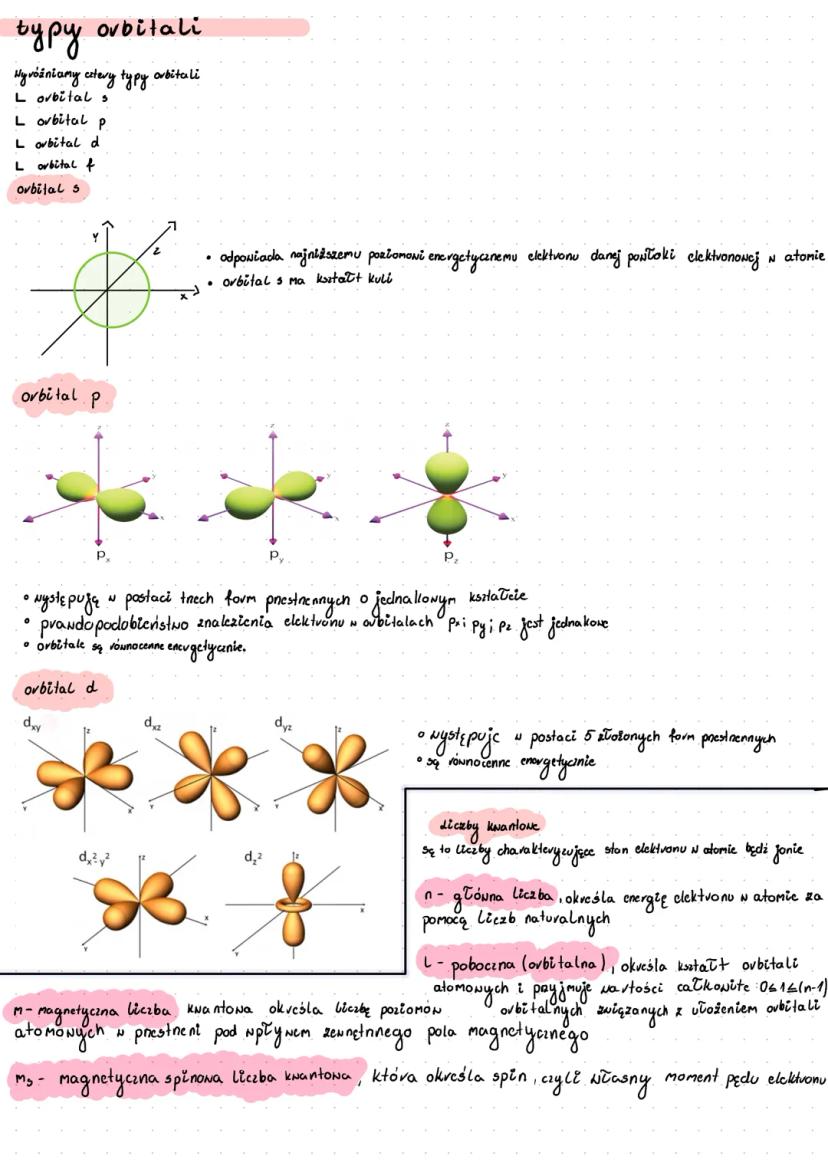 typy orbitali
Wyróżniamy cztery typy orbitali
L orbital s
L orbital p
L orbital d
L orbital f
orbital s
Y
z
x
• odpowiada najniższemu poziomowi energetycznemu elektronu danej powłoki elektronowej w atomie
• orbital s ma kształt kuli
orbital p
z
y
x
Px
z
y
x
Py
z
y
x
Pz
• występują w postaci trzech form przestrzennych o jednakowym kształcie
• prawdopodobieństwo znalezienia elektronu w orbitalach px i py i pz jest jednakowe
• orbitale są równocenne energetycznie.
orbital d
dxy
z
Y
X
dxz
z
Y
X
dyz
z
Y
X
• występuje w postaci 5 złożonych form przestrzennych
• są równocenne energetycznie
dx²-y²
z
x
Y
dz²
z
x
Y
Liczby kwantowe
są to liczby charakteryzujące stan elektronu w atomie będź jonie
n - główna liczba, określa energię elektronu w atomie za
pomocą liczb naturalnych
l - poboczna (orbitalna), określa kształt orbitali
atomowych i przyjmuje wartości całkowite 0≤l≤(n-1)
m - magnetyczna liczba kwantowa określa liczbę poziomów orbitalnych związanych z ułożeniem orbitali
atomowych w przestrzeni pod wpływem zewnętrznego pola magnetycznego
ms - magnetyczna spinowa liczba kwantowa, która określa spin, czyli własny moment pędu elektronu